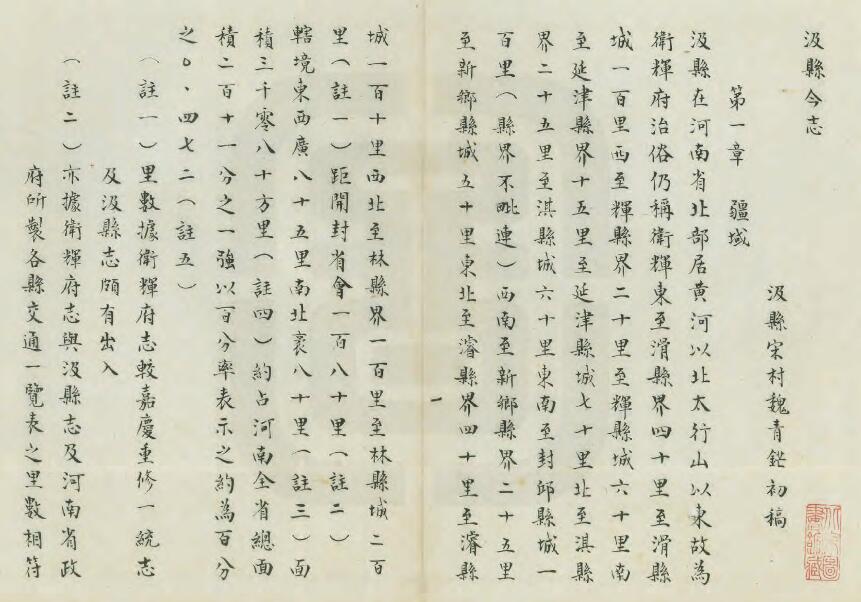 汲縣今志
汲縣宋村魏青鋩初稿
第一章　疆域
汲縣在河南省北部居黃河以北太行山以東故為
衛輝府治俗仍稱衛輝東至滑縣界四十里至滑縣
城一百里西至輝縣界二十里至輝縣城六十里南
至延津縣界十五里至延津縣城七十里北至淇縣
界二十五里至淇縣城六十里東南至封邱縣城一
百里（縣界不毗連）西南至新鄉縣界二十五里
至新鄉縣城五十里東北至濬縣界四十里至濬縣
一
城一百十里西北至林縣界一百里至林縣城二百
里（註一）距開封省會一百八十里（註二）
轄境東西廣八十五里南北袤八十里（註三）面
積三千零八十方里（註四）約占河南全省總面
積二百十一分之一強以百分率表示之約為百分
之〇、四七二（註五）
（註一）里數據衛輝府志較嘉慶重修一統志
及汲縣志頗有出入
（註二）亦據衛輝府志與汲縣志及河南省政
府所製各縣交通一覽表之里數相符